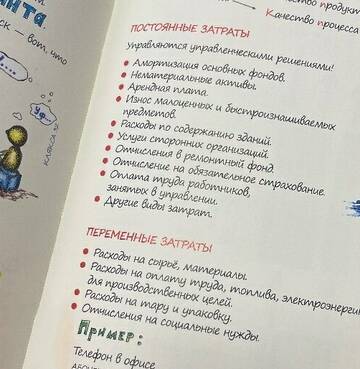 АНТА.
ск – вот, что
Уф...
Качество процесса
ПОСТОЯННЫЕ ЗАТРАТЫ
Управляются управленческими решениями!
• Амортизация основных фондов.
• Нематериальные активы.
• Арендная плата.
• Износ малоценных и быстроизнашиваемых
предметов.
• Расходы по содержанию зданий.
• Услуги сторонних организаций.
• Отчисления в ремонтный фонд.
• Отчисление на обязательное страхование.
• Оплата труда работников,
занятых в управлении.
• Другие виды затрат.
ПЕРЕМЕННЫЕ ЗАТРАТЫ
• Расходы на сырьё, материалы.
• Расходы на оплату труда, топлива, электроэнергии
для производственных целей.
• Расходы на тару и упаковку.
• Отчисления на социальные нужды.
Пример:
Телефон в офисе